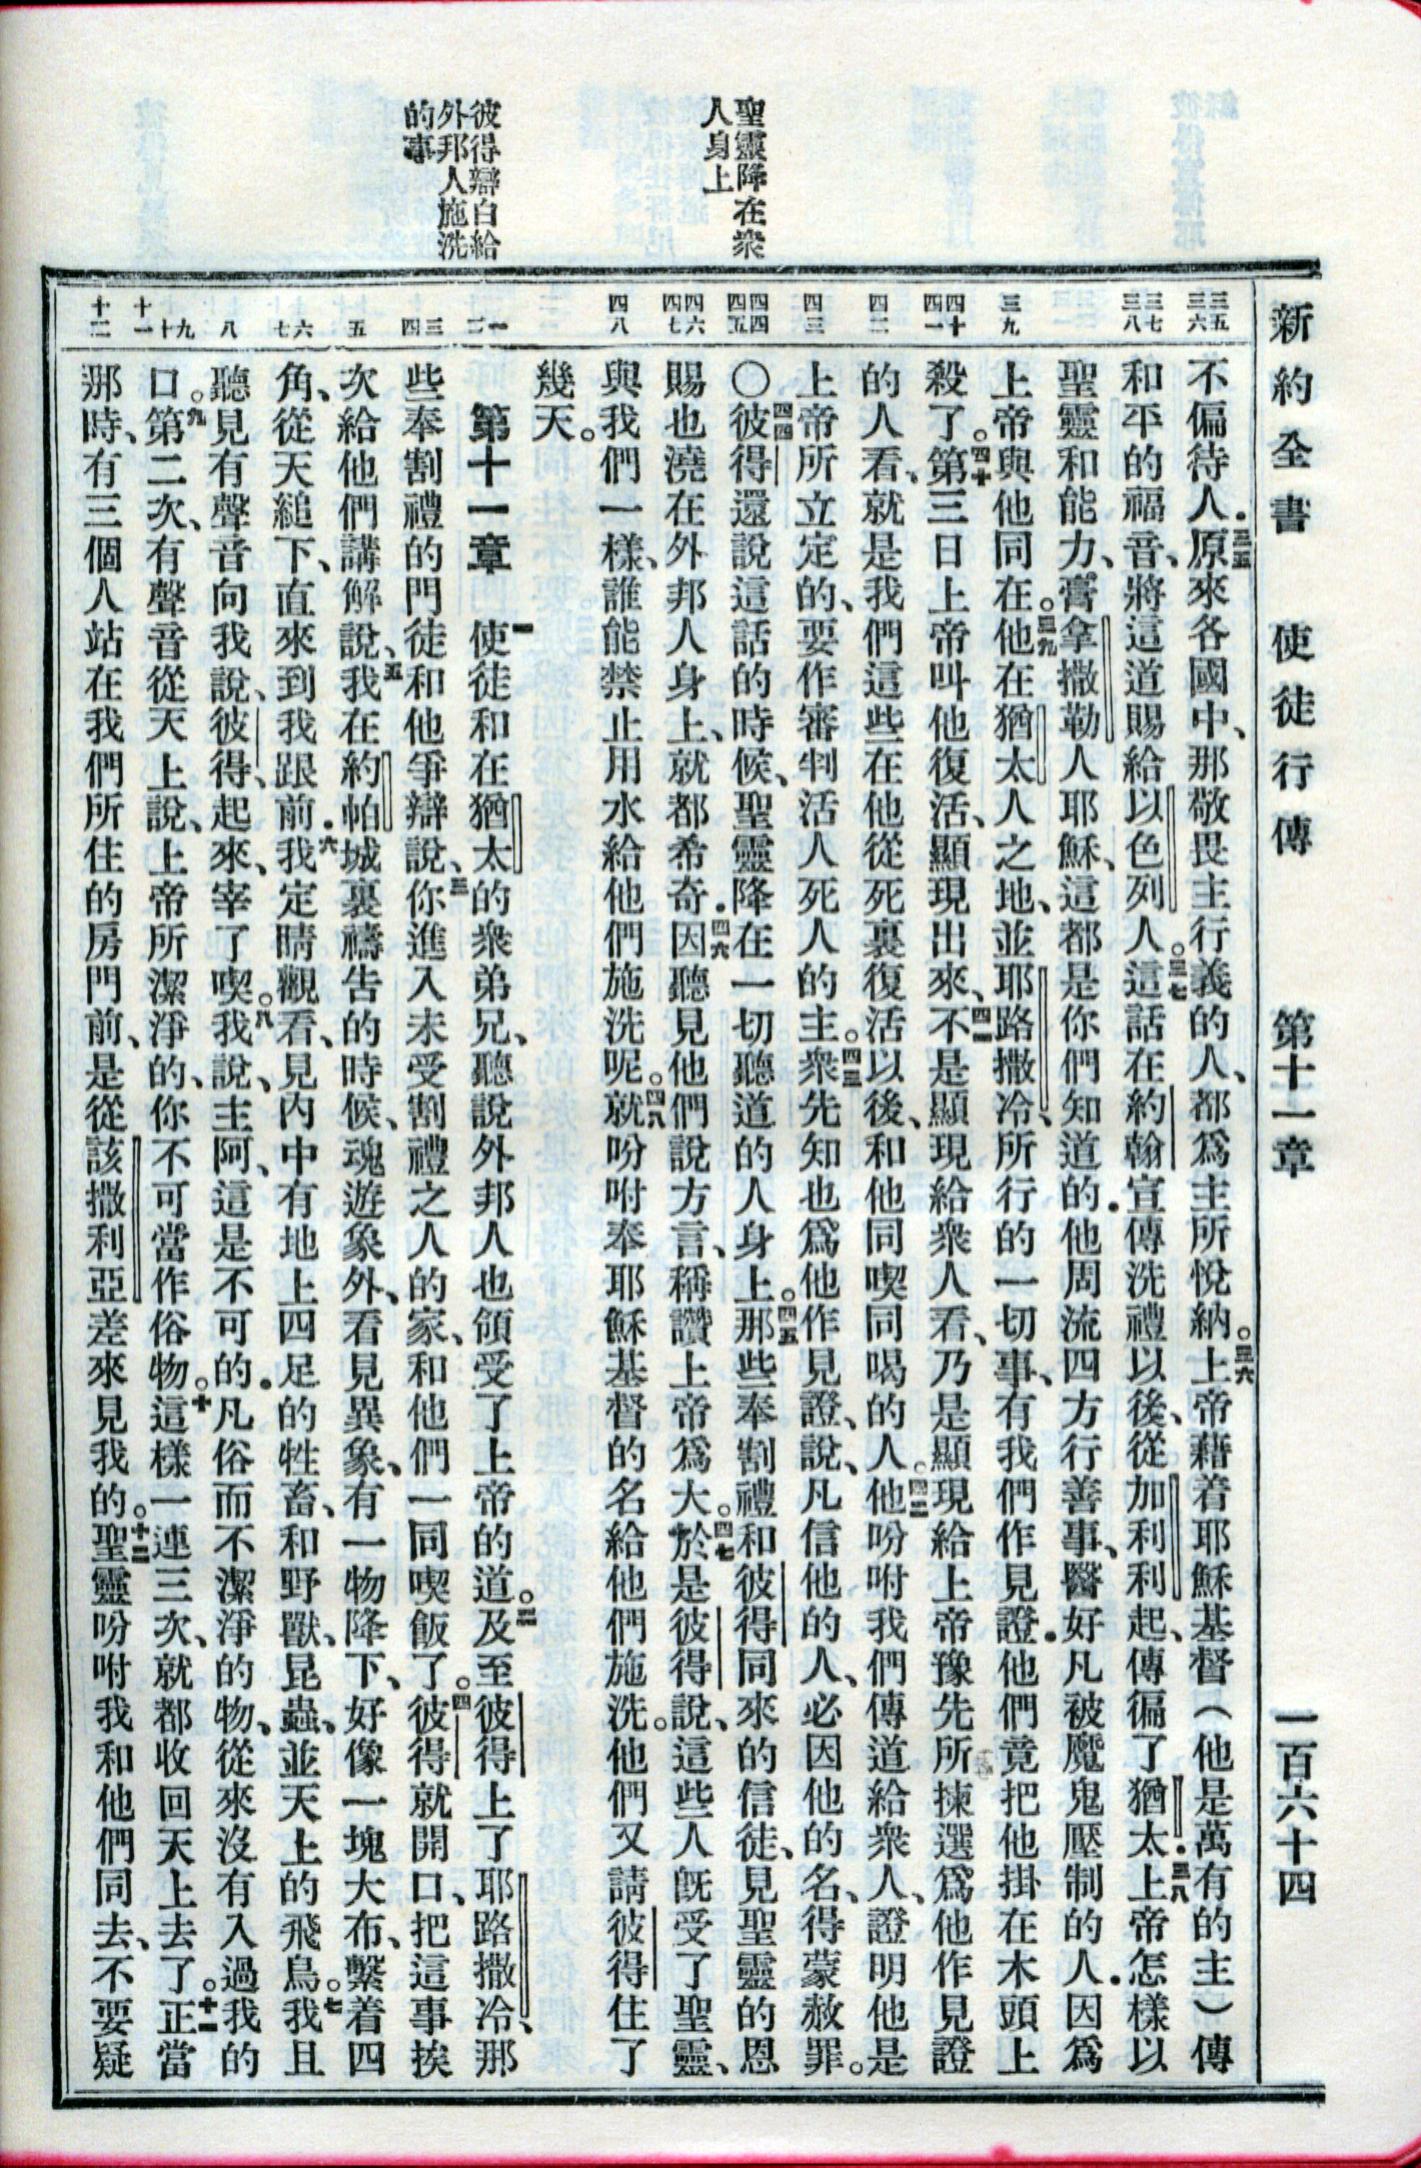 新約全書 使徒行傳 第十一章 一百六十四
聖靈降在衆
人身上
彼得辯白給
外邦人施洗
的事
三五 三六
三七 三八
三九
四十 四一
四二
四三
四四 四五
四六 四七
四八
一 二
三 四
五
六 七
八
九 十
十一
十二
不偏待人．三五原來各國中、那敬畏主行義的人、都爲主所悅納。三六上帝藉着耶穌基督（他是萬有的主）傳
和平的福音、將這道賜給以色列人。三七這話在約翰宣傳洗禮以後、從加利利起、傳徧了猶太．三八上帝怎樣以
聖靈和能力、膏拿撒勒人耶穌、這都是你們知道的．他周流四方行善事、醫好凡被魔鬼壓制的人．因爲
上帝與他同在。三九他在猶太人之地、並耶路撒冷、所行的一切事、有我們作見證．他們竟把他掛在木頭上
殺了。四十第三日上帝叫他復活、顯現出來、四一不是顯現給衆人看、乃是顯現給上帝豫先所揀選爲他作見證
的人看、就是我們這些在他從死裏復活以後、和他同喫同喝的人。四二他吩咐我們傳道給衆人、證明他是
上帝所立定的、要作審判活人死人的主。四三衆先知也爲他作見證、說、凡信他的人、必因他的名、得蒙赦罪。
〇四四彼得還說這話的時候、聖靈降在一切聽道的人身上。四五那些奉割禮和彼得同來的信徒、見聖靈的恩
賜也澆在外邦人身上、就都希奇．四六因聽見他們說方言、稱讚上帝爲大。四七於是彼得說、這些人旣受了聖靈、
與我們一樣、誰能禁止用水給他們施洗呢。四八就吩咐奉耶穌基督的名給他們施洗。他們又請彼得住了
幾天。
第十一章 一使徒和在猶太的衆弟兄、聽說外邦人也領受了上帝的道。二及至彼得上了耶路撒冷、那
些奉割禮的門徒和他爭辯說、三你進入未受割禮之人的家、和他們一同喫飯了。四彼得就開口、把這事挨
次給他們講解說、五我在約帕城裏禱告的時候、魂遊象外、看見異象、有一物降下、好像一塊大布、繫着四
角、從天縋下、直來到我跟前．六我定睛觀看、見內中有地上四足的牲畜、和野獸、昆蟲、並天上的飛鳥。七我且
聽見有聲音向我說、彼得、起來、宰了喫。八我說、主阿、這是不可的．凡俗而不潔淨的物、從來沒有入過我的
口。九第二次、有聲音從天上說、上帝所潔淨的、你不可當作俗物。十這樣一連三次、就都收回天上去了。十一正當
那時、有三個人站在我們所住的房門前、是從該撒利亞差來見我的。十二聖靈吩咐我和他們同去、不要疑